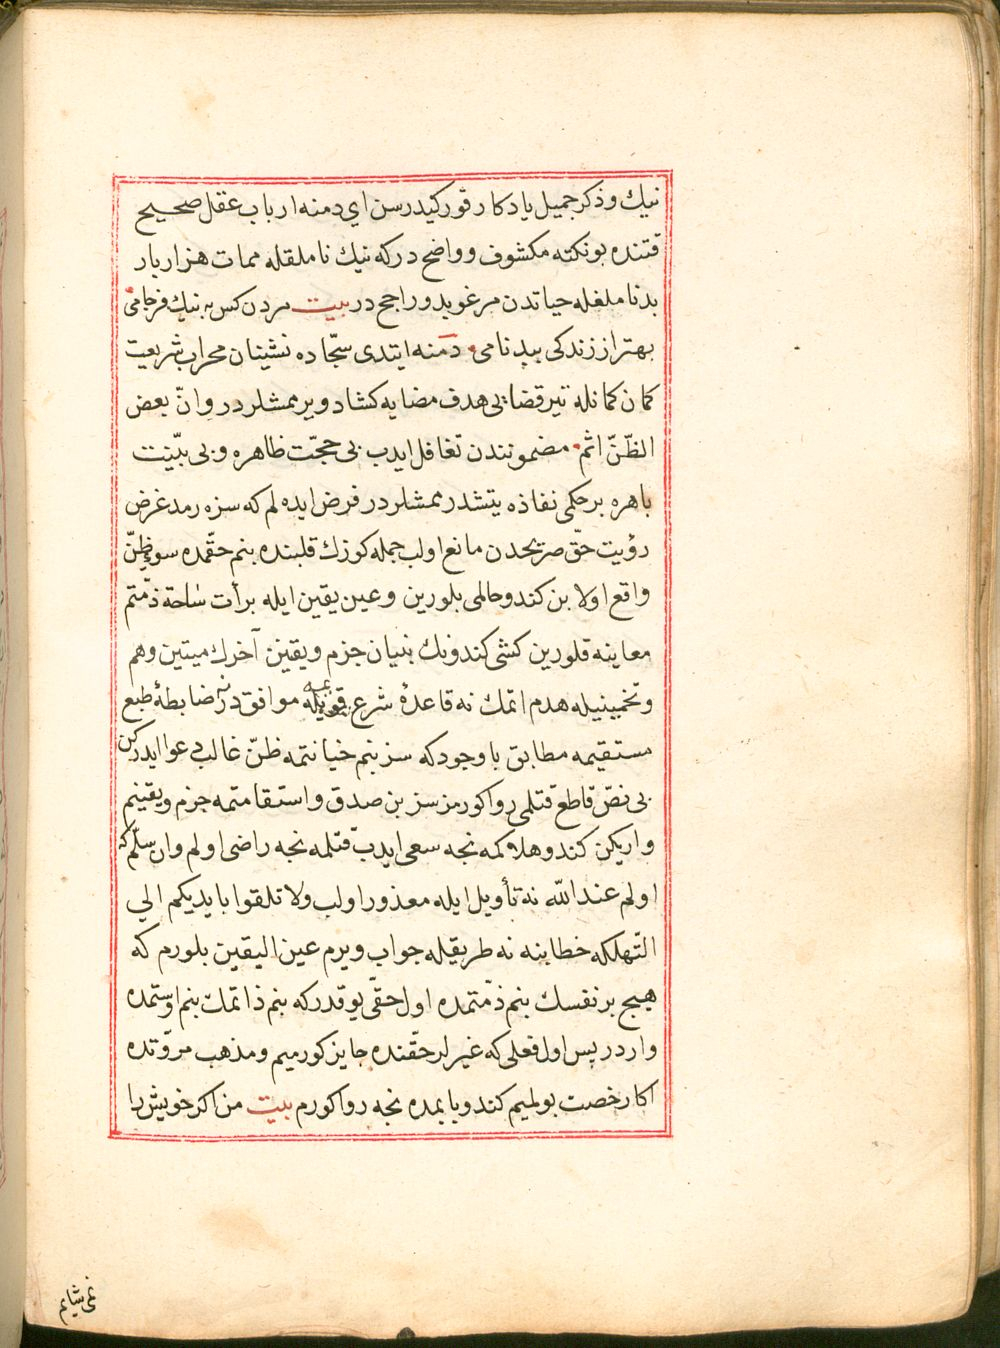 نيك وذكر جميل يادكار قور كيدرسن اي دمنه ارباب عقل صحيح
قتنده بو نكته مكشوف وواضح دركه نيك ناملقله ممات هزار بار
بدناملغله حياتدن مرغوبدور راجح در بيت مردن كس به نيك فرجامى
بهتر از زندكى ببدنامى دمنه ايتدى سجّاده نشينان محراب شريعت
كمان كمانله تير قضايى هدف مضايه كشاد ويرممشلردر وانّ بعض
الظّنّ اثم مضموننندن تغافل ايدب بى حجّت ظاهره وبى بيّنت
باهره بر حكمى نفاذه يتشدرممشلردر فرض ايده لم كه سزه رمد غرض
رؤيت حقّ صريحدن مانع اولب جمله كوزك قلبنده بنم حقّمده سوء ظنّ
واقع اولا بن كندو حالمى بلورين وعين يقين ايله برأت ساحة ذمّتم
معاينه قلورين كشى كندونك بنيان جزم ويقينن آخرك ميتين وهم
وتخمينيله هدم اتمك نه قاعدۀ شرع قويمه موافق در نه ضابطۀ طبع
مستقيمه مطابق باوجودكه سز بنم خيانتمه ظنّ غالب دعوا ايدركن
بى نصّ قاطع قتلمى روا كورمزسز بن صدق واستقامتمه جزم ويقينم
واريكن كندو هلاكمه نجه سعى ايدب قتلمه نجه راضى اولم وان سلّم كه
اولم عند الله نه تأويل ايله معذور اولب ولا تلقوا بايديكم الى
التّهلكه خطابنه نه طريقيله جواب ويرم عين اليقين بلورم كه
هيچ بر نفسك بنم ذمّتمده اول حقّى يوقدركه بنم ذاتمك بنم اوستمده
واردر پس اول فعلى كه غيرلر حقّنده جايز كورميم ومذهب مروّتده
اكا رخصت بولميم كندو بابمده نجه روا كورم بيت من اكر خويش را